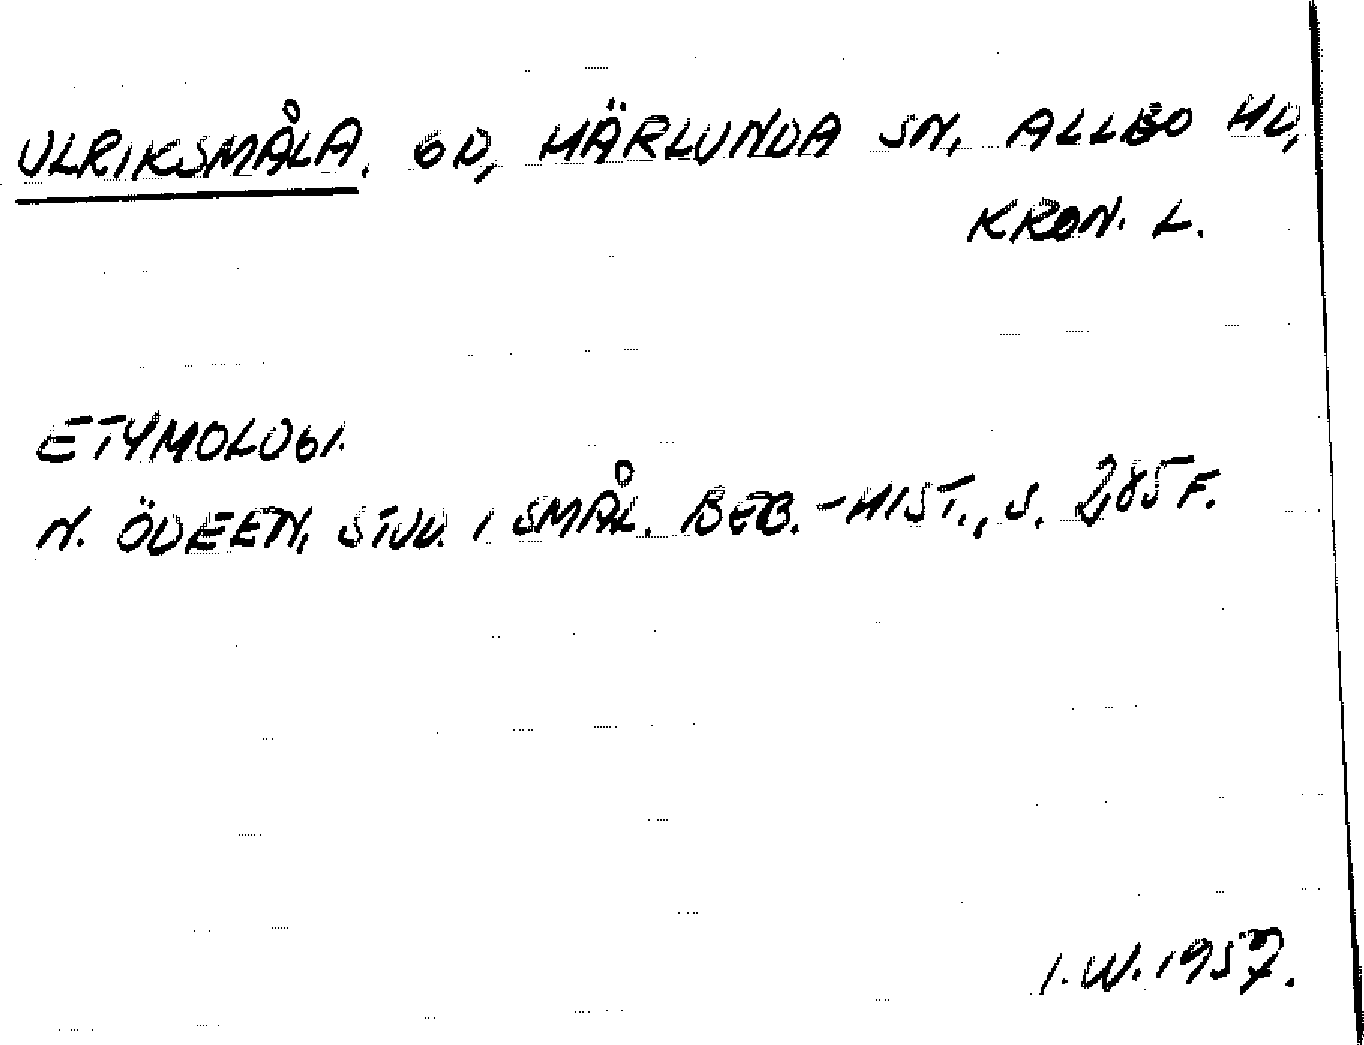 ULRIKSMÅLA. GD, HÄRLUNDA SN, ALLBO HD,
KRON. L.
ETYMOLOGI.
N. ÖDEEN, STUD. I SMÅL. BEB.-HIST., S. 285 F.
I.W. 1957.